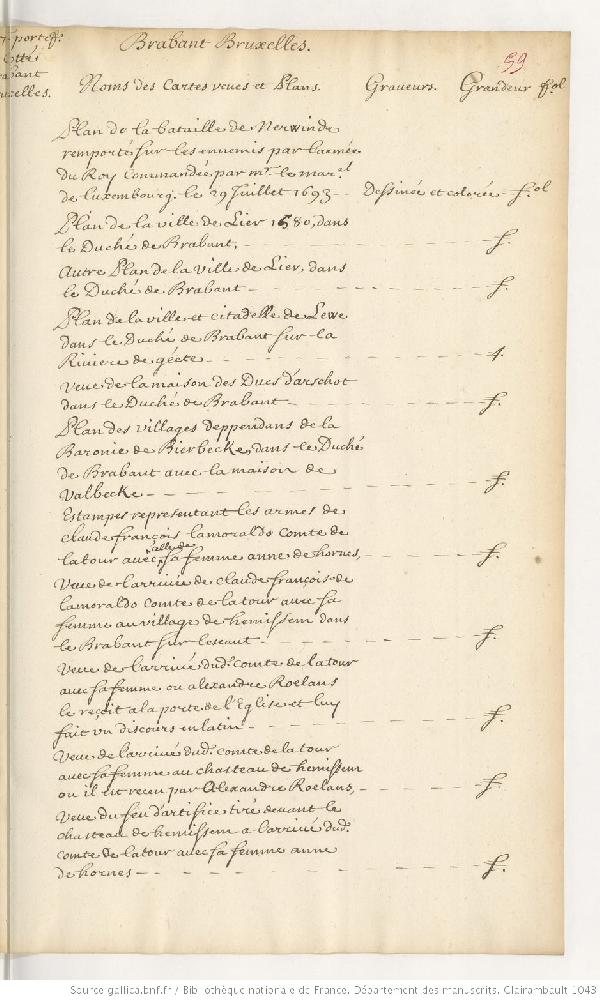 Brabant Bruxelles.
59
Noms des Cartes veues et Plans. Graveurs. Grandeur fol
Plan de la bataille de Nerwinde
remporté sur les ennemis par l'armée
du Roy Commandée par mr. le maral.
de luxembourg. le 29 Juillet 1693 -- Dessinée et colorée - fol
Plan de la ville de Lier 1580, dans
le Duché de Brabant, - - - - - f.
Autre Plan de la ville de Lier, dans
le Duché de Brabant - - - - - f.
Plan de la ville et citadelle de Lewe
dans le Duché de Brabant sur la
Riviere de géete - - - - - 4.
Veue de la maison des Ducs d'arschot
dans le Duché de Brabant - - - - - f.
Plan des villages deppendans de la
Baronie de Bierbecke, dans le Duché
de Brabant avec la maison de
Valbecke - - - - - f.
Estampes representant les armes de
claude françois lamoraldo comte de
la tour avec celle de sa femme anne de hornes, - - - f.
Veue de l'arrivée de claude françois de
lamoraldo comte de la tour avec sa
femme au village de hemissem dans
le Brabant sur l'escaut - - - - - f.
Veue de l'arrivé dud. comte de la tour
avec sa femme ou alexandre Roelans
le reçoit a la porte de l'Eglise et luy
fait un discours en latin - - - - - f.
Veue de l'arrivé dud. comte de la tour
avec sa femme au chasteau de hemissem
ou il est receu par Alexandre Roelans, - - - f.
Veue du feu d'artifice tiré devant le
chasteau de hemissem a l'arrivé dud.
comte de la tour avec sa femme anne
de hornes - - - - - f.
Source gallica.bnf.fr / Bibliothèque nationale de France. Département des manuscrits. Clairambault 1043